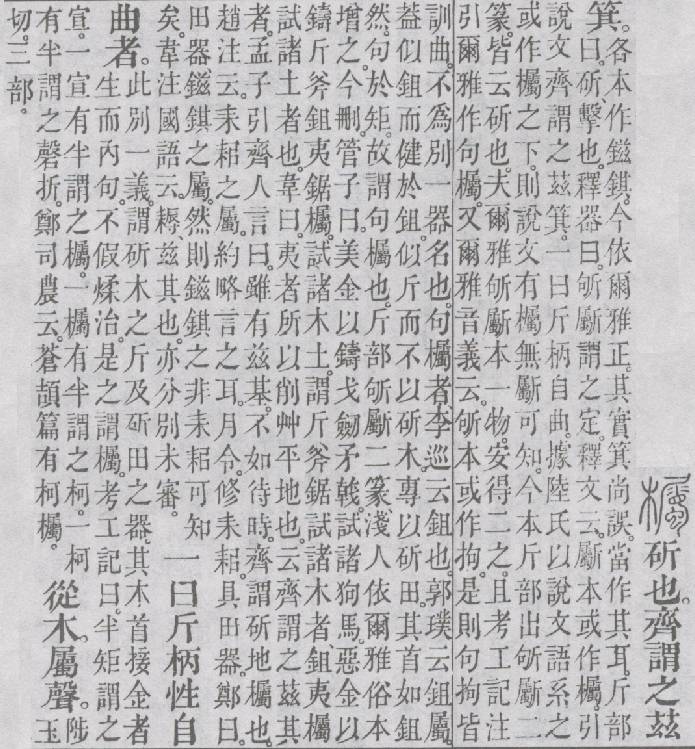 欘斫也。齊謂之茲
箕。各本作鎡錤。今依爾雅正。其實箕尚誤。當作其耳。斤部
曰。斫、擊也。釋器曰。斪斸謂之定。釋文云。斸本或作欘。引
說文齊謂之茲箕。一曰斤柄自曲。據陸氏以說文語系之
或作欘之下。則說文有欘無斸可知。今本斤部出斪斸二
篆。皆云斫也。夫爾雅斪斸本一物。安得二之。且考工記注
引爾雅作句欘。又爾雅音義云。斪本或作拘。是則句拘皆
訓曲。不爲別一器名也。句欘者李巡云鉏也。郭璞云鉏屬。
葢似鉏而健於鉏。似斤而不以斫木。專以斫田。其首如鉏
然。句於矩。故謂句欘也。斤部斪斸二篆淺人依爾雅俗本
增之。今刪。管子曰。美金以鑄戈劒矛戟。試諸狗馬。惡金以
鑄斤斧鉏夷鋸欘。試諸木土。謂斤斧鋸試諸木者。鉏夷欘
試諸土者也。韋曰。夷者所以削艸平地也。云齊謂之茲其
者。孟子引齊人言曰。雖有茲基。不如待時。齊謂斫地欘也。
趙注云。耒耜之屬。約略言之耳。月令。修耒耜。具田器。鄭曰。
田器鎡錤之屬。然則鎡錤之非耒耜可知
矣。韋注國語云。耨茲其也。亦分別未審。一曰斤柄性自
曲者。此別一義。謂斫木之斤及斫田之器。其木首接金者
生而內句。不假煣治。是之謂欘。考工記曰。半矩謂之
宣。一宣有半謂之欘。一欘有半謂之柯。一柯
有半謂之磬折。鄭司農云。蒼頡篇有柯欘。從木。屬聲。陟玉
切。三部。